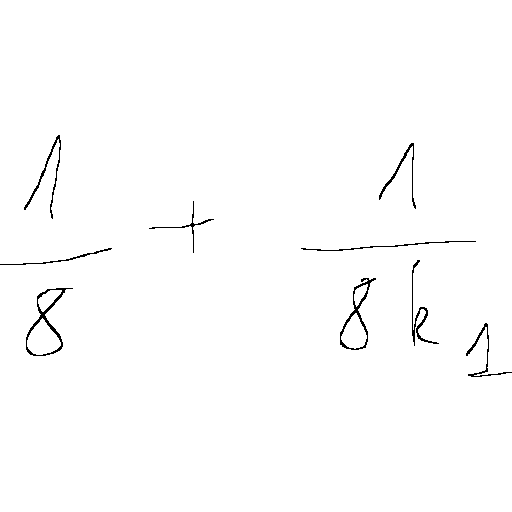 \frac{1}{8} + \frac{1}{8k_1}